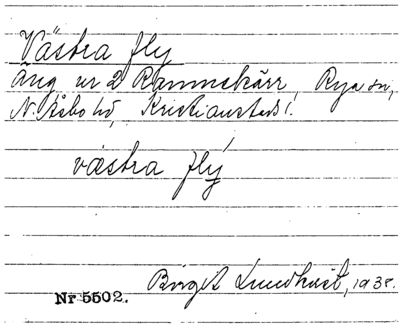 Västra fly
Äng ur 2 Rammekärr, Rya sn,
N. Åsbo hd, Kristianstads l.
västra flý
Birgit Lundkvist, 1938.
Nr 5502.